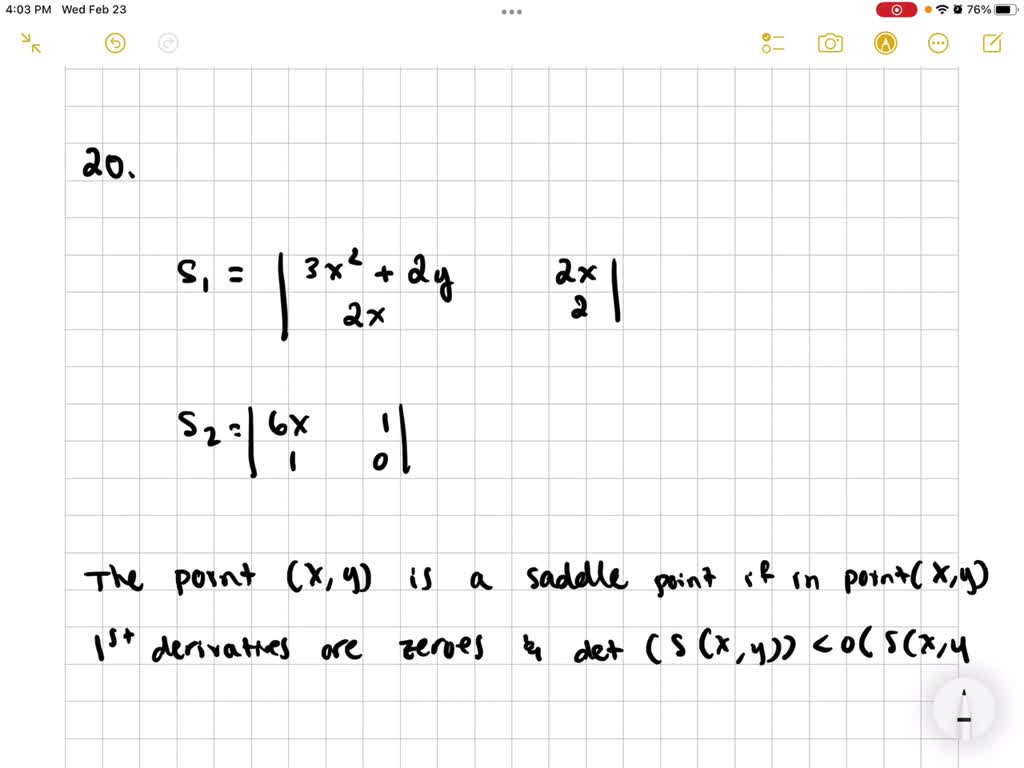 4:03 PM Wed Feb 23
76%
20.
S₁ = | 3x² + 2y 2x |
2x 2
S₂ = | 6x 1 |
1 0
The point (x, y) is a saddle point if in point (x, y)
1st derivatives are zeroes & det (S(x, y)) < 0 (S(x, y